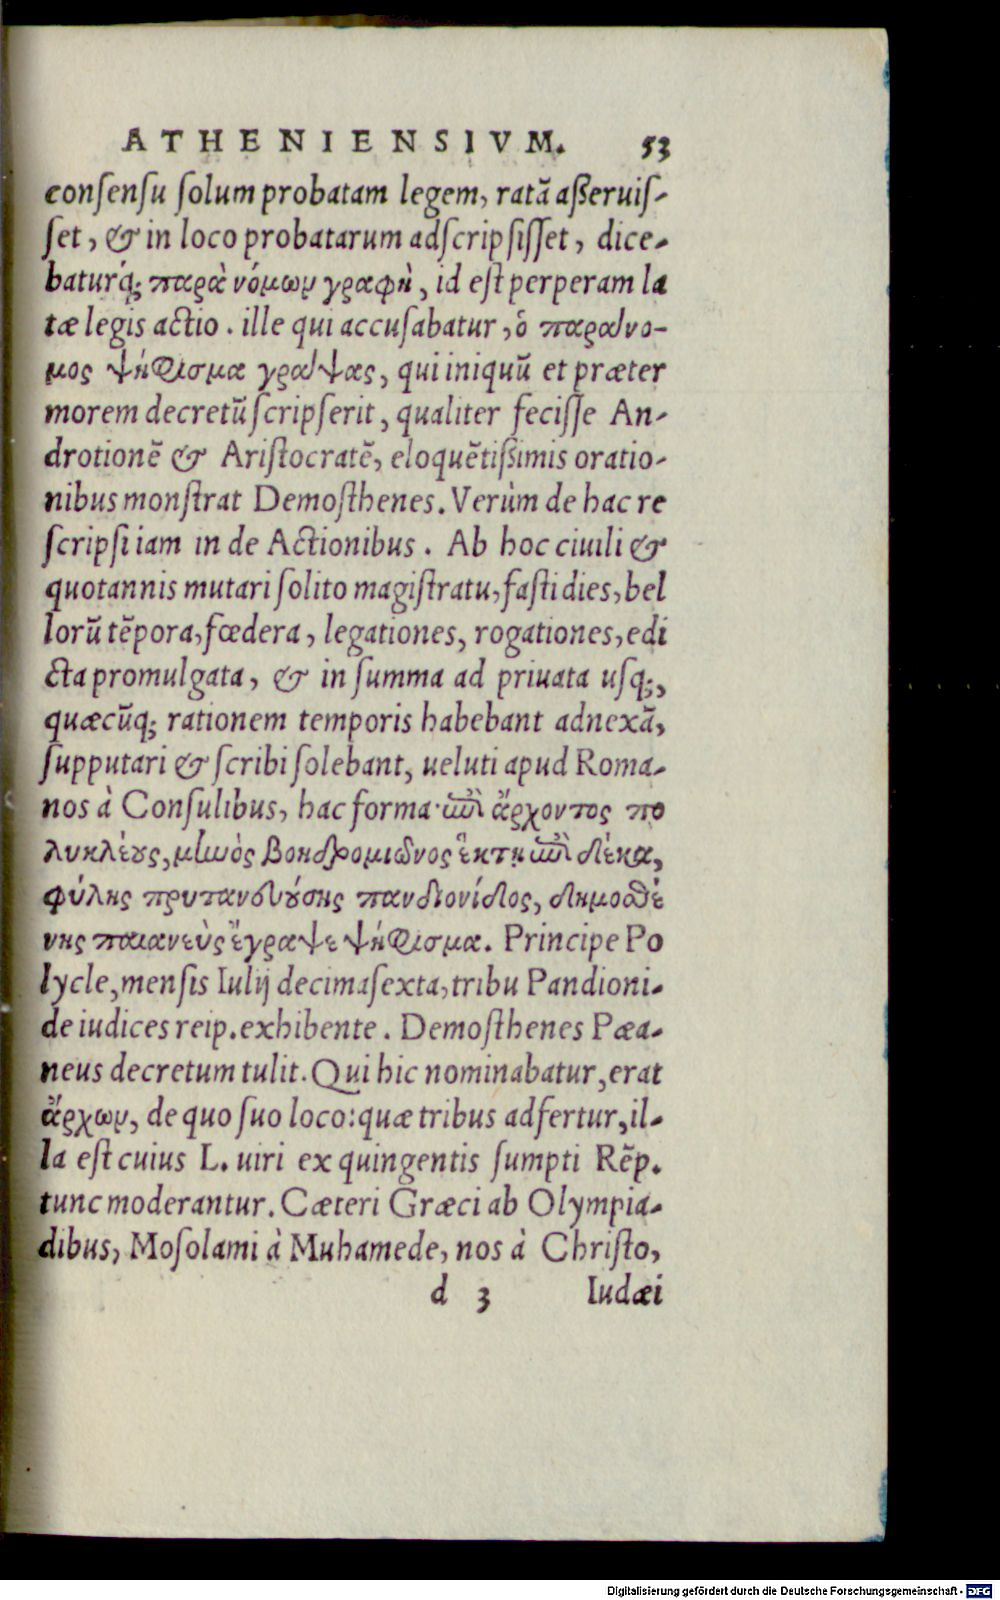 ATHENIENSIVM. 53
conſenſu ſolum probatam legem, ratã aßeruiſ-
ſet, & in loco probatarum adſcripſiſſet, dice-
baturq́; παρὰ νόμων γραφὴ, id eſt perperam la
tæ legis actio. ille qui accuſabatur, ὁ παράνο-
μος ψήφισμα γράψας, qui iniquũ et præter
morem decretũ ſcripſerit, qualiter feciſſe An-
drotionẽ & Ariſtocratẽ, eloquẽtißimis oratio-
nibus monſtrat Demoſthenes. Verùm de hac re
ſcripſi iam in de Actionibus. Ab hoc ciuili &
quotannis mutari ſolito magiſtratu, faſti dies, bel
lorũ tẽpora, fœdera, legationes, rogationes, edi
cta promulgata, & in ſumma ad priuata uſq;,
quæcũq; rationem temporis habebant adnexã,
ſupputari & ſcribi ſolebant, ueluti apud Roma-
nos à Conſulibus, hac forma· ἐπὶ ἄρχοντος πο
λυκλέους, μηνὸς βοηδρομιῶνος ἕκτῃ ἐπὶ δέκα,
φύλης πρυτανευούσης πανδιονίδος, δημοσθέ
νης παιανεὺς ἔγραψε ψήφισμα. Principe Po
lycle, menſis Iulij decimaſexta, tribu Pandioni-
de iudices reip. exhibente. Demoſthenes Pæa-
neus decretum tulit. Qui hic nominabatur, erat
ἄρχων, de quo ſuo loco: quæ tribus adfertur, il-
la eſt cuius L. uiri ex quingentis ſumpti Rẽp.
tunc moderantur. Cæteri Græci ab Olympia-
dibus, Moſolami à Muhamede, nos à Chriſto,
d 3 Iudæi
Digitalisierung gefördert durch die Deutsche Forschungsgemeinschaft - DFG